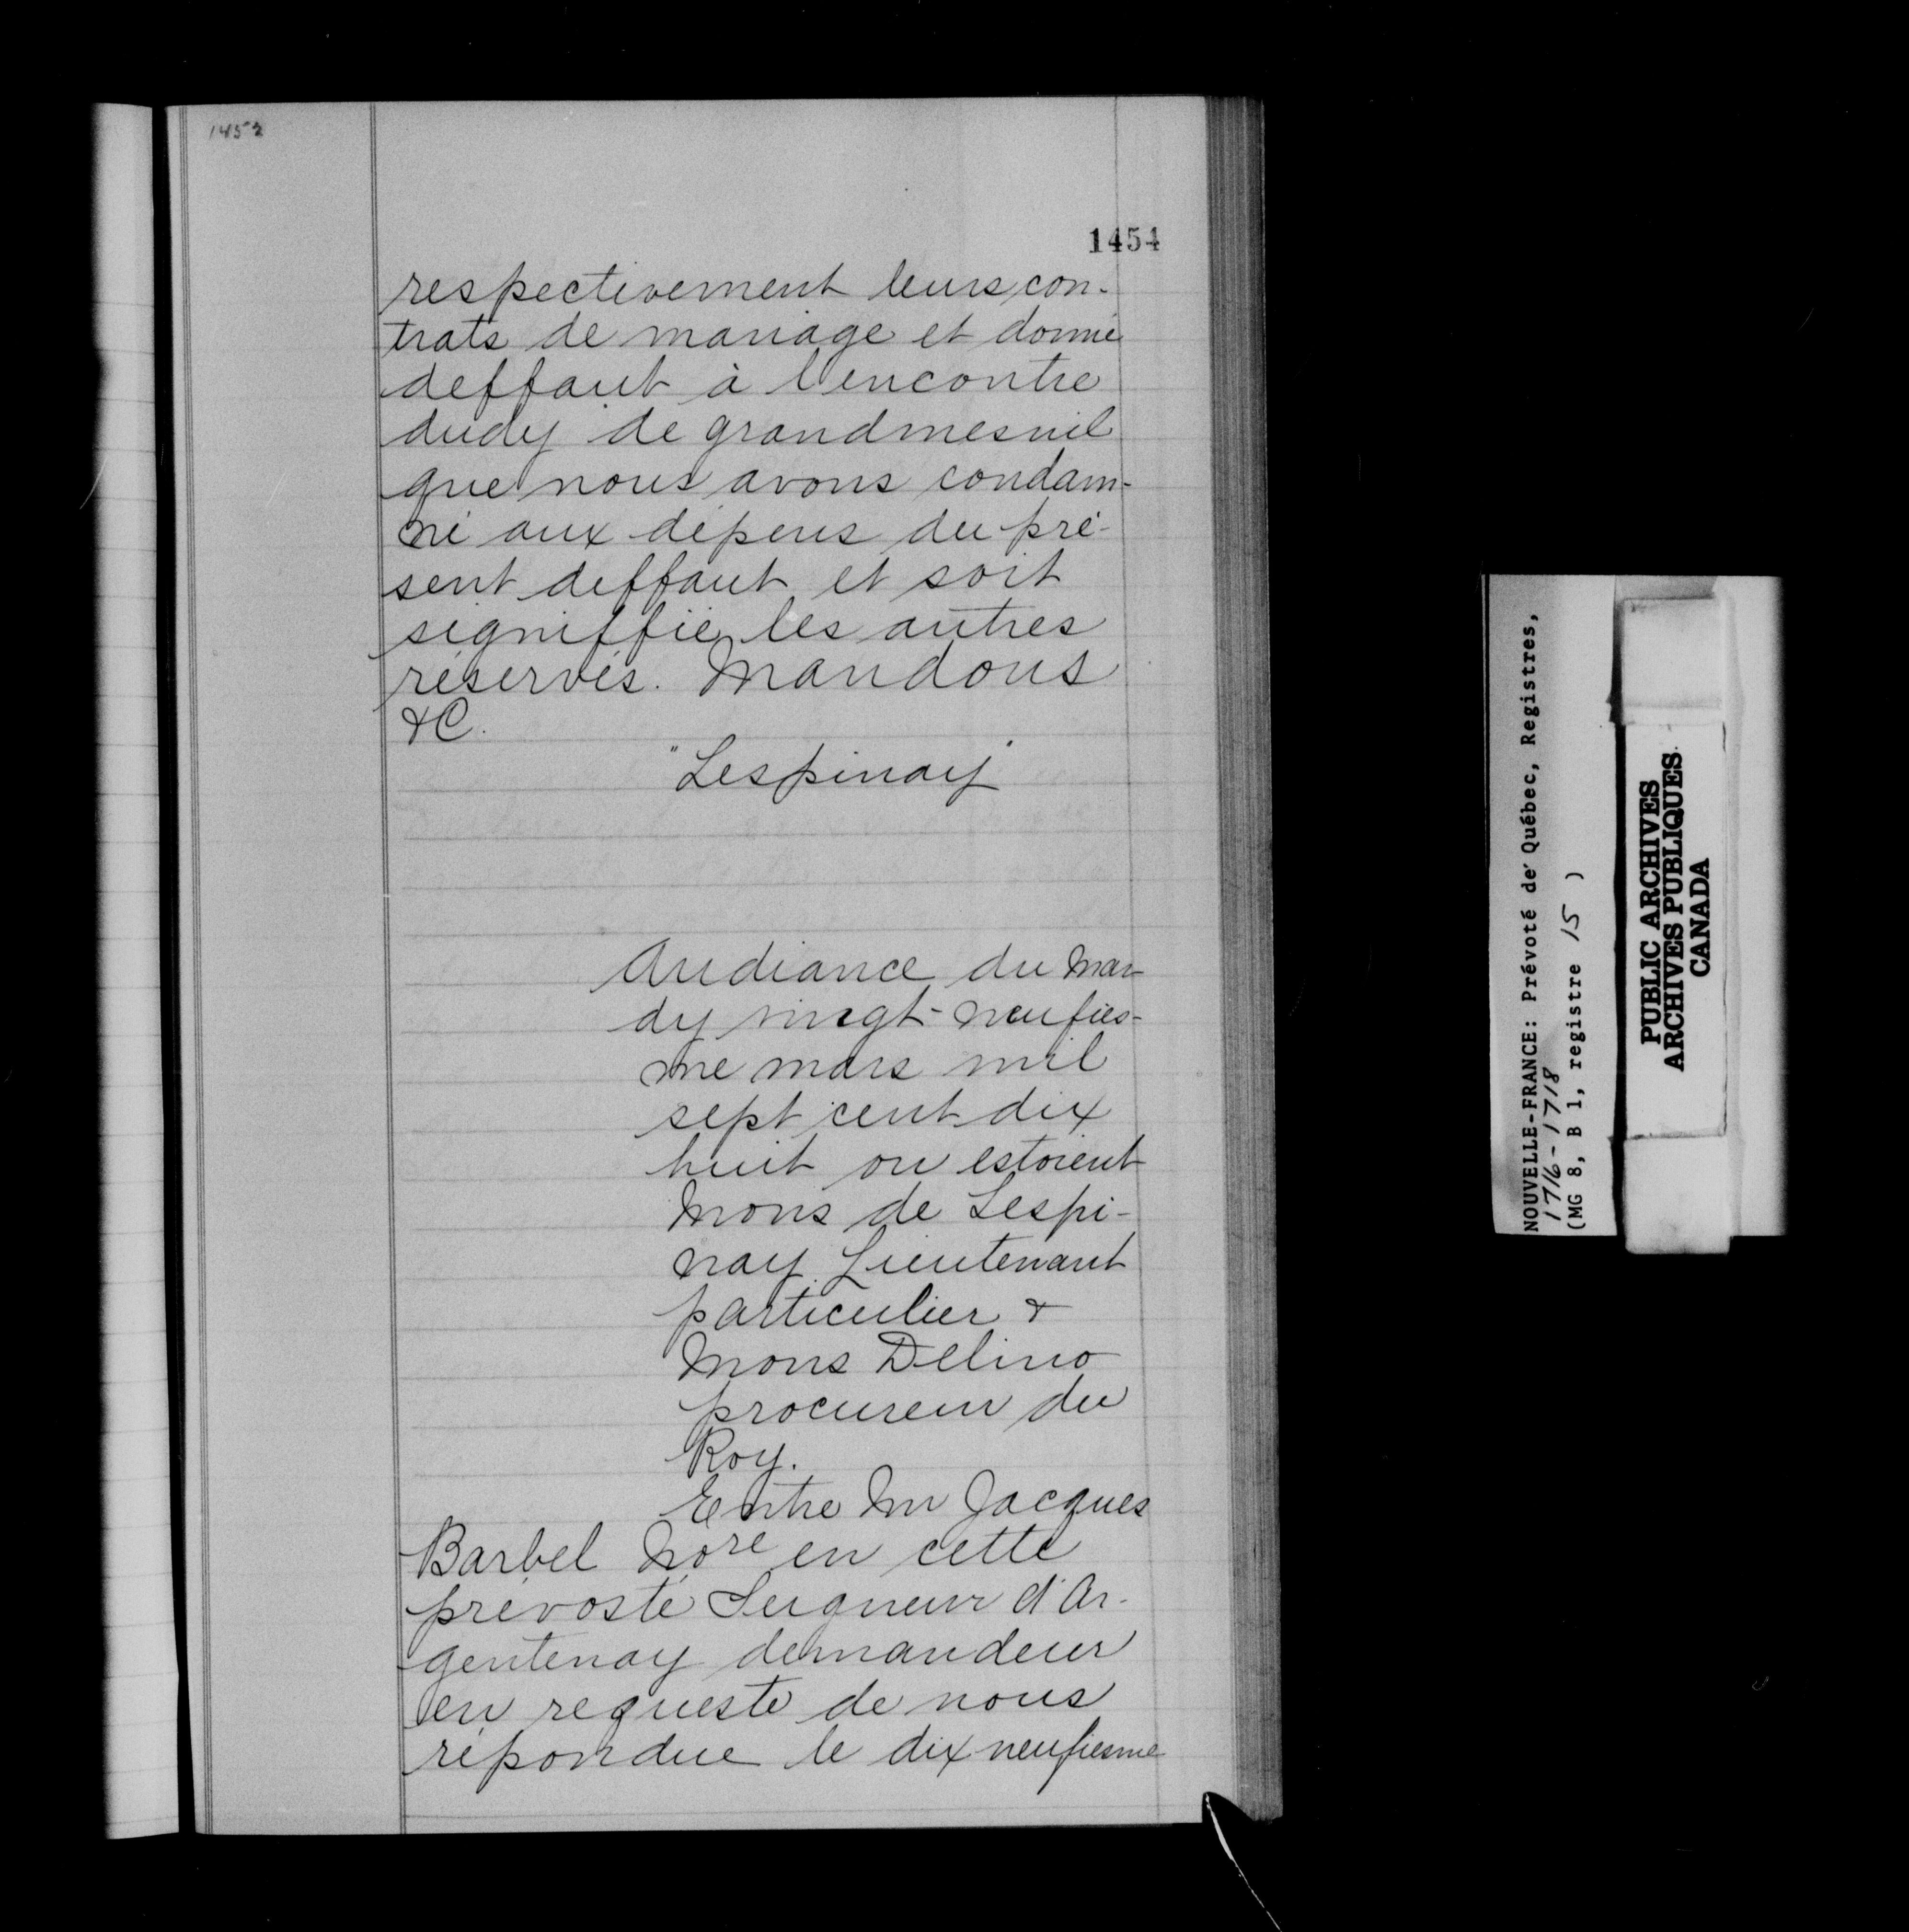 1452
1454
respectivement leurs con-
trats de mariage et donné
deffaut à l'encontre
dudy de grandmesnil
que nous avons condam-
né aux dépens du pré-
sent deffaut et soit
signiffié les autres
réservés. Mandons
&C.
"Lespinay"
Audiance du Mar-
dy vingt-neufies-
me mars mil
sept cent dix
huit ou estoient
Mons de Lespi-
nay Lieutenant
particulier &
Mons Delino
procureur du
Roy.
Entre Mr Jacques
Barbel Nore en cette
prévosté Seigneur d'Ar-
gentenay demandeur
en requeste de nous
répondue le dix neufiesme
NOUVELLE-FRANCE: Prévoté de Québec, Registres,
1716-1718
(MG 8, B 1, registre 15 )
PUBLIC ARCHIVES
ARCHIVES PUBLIQUES
CANADA